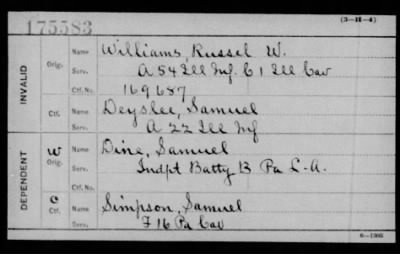 (3-H-4)
175583
INVALID
Orig. Name Williams, Russel W.
Serv. A 54 Ill Inf. C 1 Ill Cav
Ctf. No. 169687
Ctf. Name Deyslee, Samuel
Serv. A 22 Ill Inf
DEPENDENT
W Orig. Name Dine, Samuel
Serv. Indpt Batty B Pa L.A.
Ctf. No.
C Ctf. Name Simpson, Samuel
Serv. F 16 Pa Cav